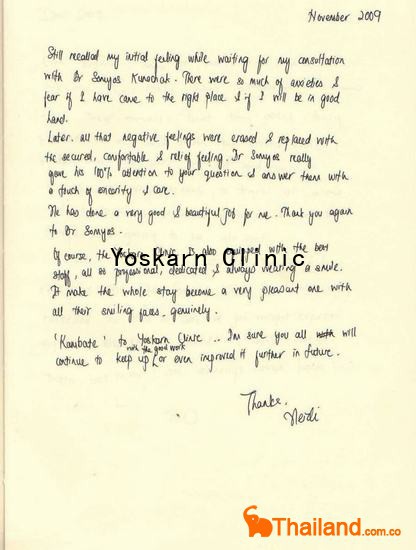 November 2009
Still recalled my initial feeling while waiting for my consultation
with Dr Somyos Kunachak. There were so much of anxieties &
fear if I have come to the right place & if I will be in good
hand.
Later. all that negative feelings were erased & replaced with
the secured, comfortable & relief feeling. Dr Somyos really
gave his 100% attention to your question & answer them with
a touch of sincerity & care.
He has done a very good & beautiful job for me. Thank you again
to Dr Somyos.
Of course, the Yoskarn Clinic is also equipped with the best
Yoskarn Clinic
staff, all so professional, dedicated & always wearing a smile.
It make the whole stay become a very pleasant one with
all their smiling faces, genuinely.
'Kambate' to Yoskarn Clinic .. I'm sure you all will
with the good work
continue to keep up / or even improved it further in future.
Thanks,
Heidi
Thailand.com.co